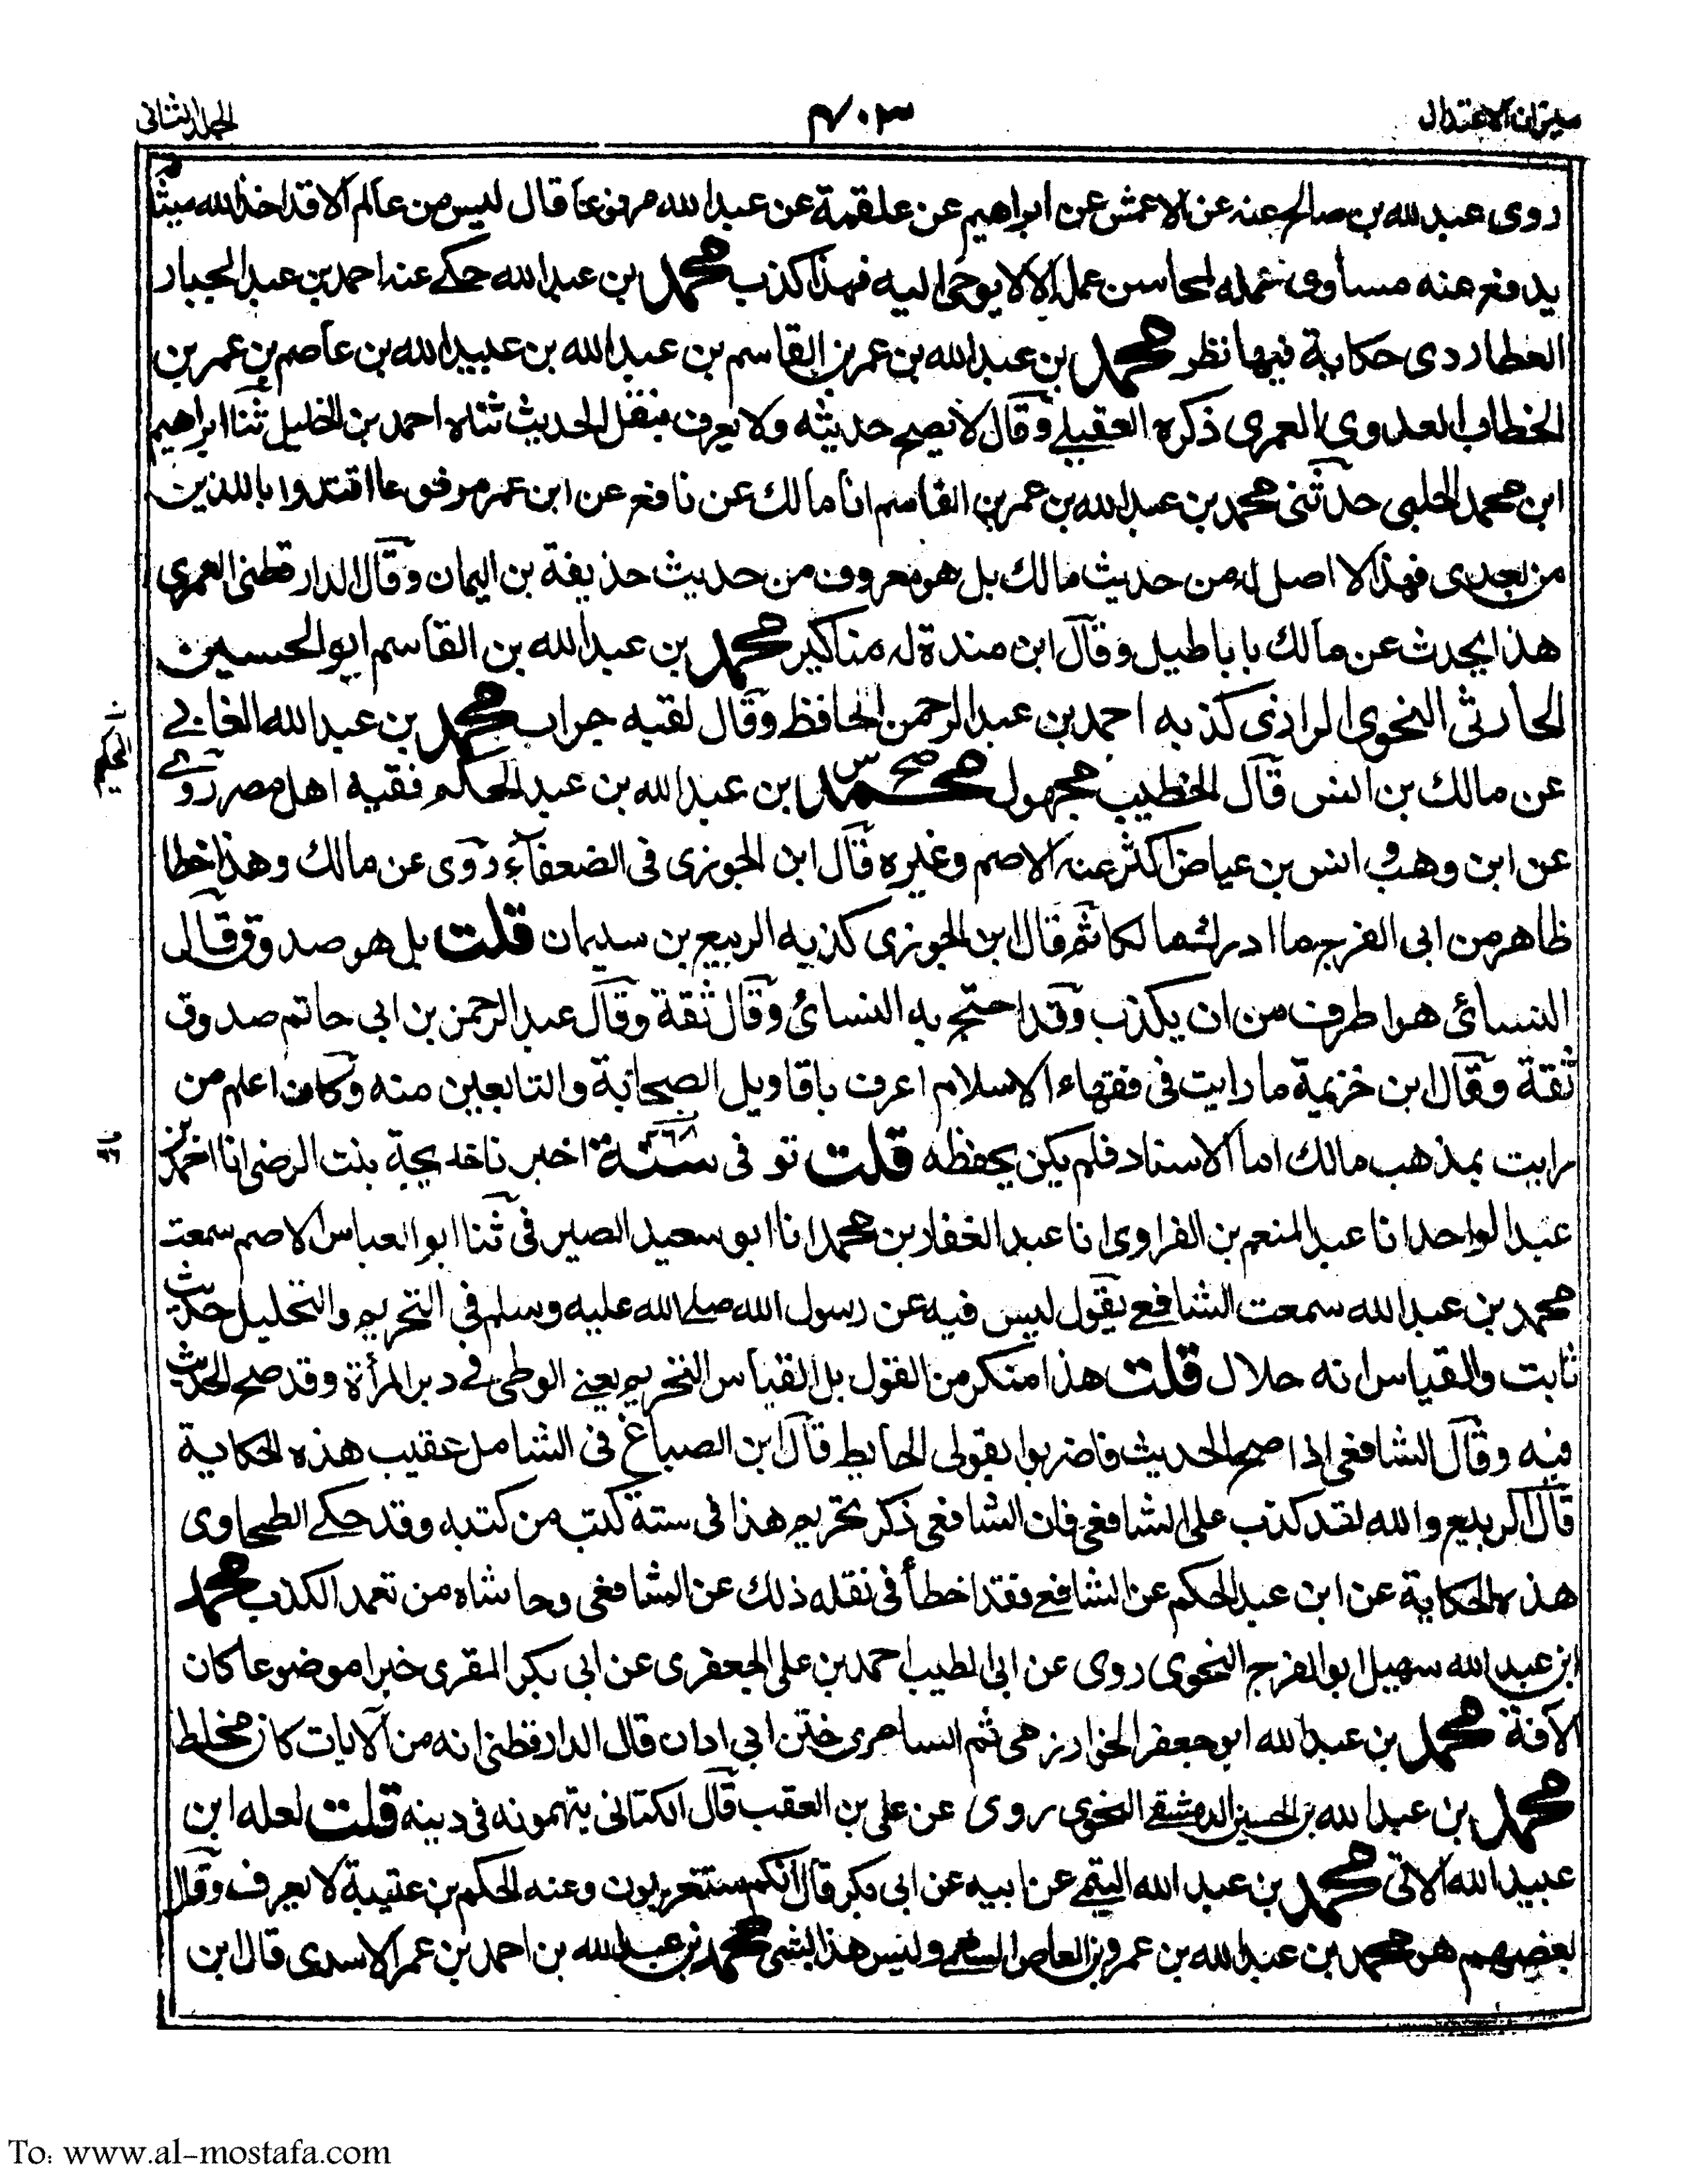 ميزان الاعتدال
٤٠٣
الجلد الثاني
روى عبد الله بن صالح عنه عن الاعمش عن ابراهيم عن علقمة عن عبد الله مرفوعا قال ليس من عالم الا قد اخذ الله ميثاقه
يدفع عنه مساوى عمله لمحاسن عمله الا انه لا يوحى اليه فهذا كذب محمد بن عبد الله حكى عنه احمد بن عبد الجبار
العطاردى حكاية فيها نظر محمد بن عبد الله بن عمر بن القاسم بن عبد الله بن عبيد الله بن عاصم بن عمر بن
الخطاب العدوي العمرى ذكره العقيلى وقال لا يصح حديثه ولا يعرف بنقل الحديث ثناه احمد بن الخليل ثنا ابراهيم
ابن محمد الحلبى حدثنى محمد بن عبد الله بن عمر بن القاسم انا مالك عن نافع عن ابن عمر مرفوعا اقتدوا بالذين
من بعدى فهذا لا اصل له من حديث مالك بل هو معروف من حديث حذيفة بن اليمان وقال الدارقطنى العمرى
هذا يحدث عن مالك باباطيل وقال ابن مندة له مناكير محمد بن عبد الله بن القاسم ابو الحسين
الحارثى النحوى الرازى كذبه احمد بن عبد الرحمن الحافظ وقال لقبه جراب محمد بن عبد الله الغابى
عن مالك بن انس قال الخطيب مجهول محمد س صح بن عبد الله بن عبد الحكم فقيه اهل مصر روى
الحكم
عن ابن وهب وانس بن عياض اكثر عنه الاصم وغيره قال ابن الجوزى فى الضعفاء روى عن مالك وهذا خطا
ظاهر من ابى الفرج ما ادرك مالكا ثم قال ابن الجوزى كذبه الربيع بن سليمان قلت بل هو صدوق قال
النسائى هو اظرف من ان يكذب وقد احتج به النسائى وقال ثقة وقال عبد الرحمن بن ابى حاتم صدوق
ثقة وقال ابن خزيمة ما رايت فى فقهاء الاسلام اعرف باقاويل الصحابة والتابعين منه وكان اعلم من
رايت بمذهب مالك اما الاسناد فلم يكن يحفظه قلت توفى سنة ٢٦٨ اخبرنا خديجة بنت الرضى انا احمد بن
عبد الواحد انا عبد المنعم بن الفراوى انا عبد الغفار بن محمد انا ابو سعيد الصيرفى ثنا ابو العباس الاصم سمعت
محمد بن عبد الله سمعت الشافعى يقول ليس فيه عن رسول الله صلى الله عليه وسلم فى التحريم والتحليل حديث
ثابت والقياس انه حلال قلت هذا منكر من القول بل القياس التحريم يعنى الوطى فى دبر المرأة وقد صح الحديث
فيه وقال الشافعى اذا صح الحديث فاضربوا بقولى الحايط قال ابن الصباغ فى الشامل عقيب هذه الحكاية
قال الربيع والله لقد كذب على الشافعى فان الشافعى ذكر تحريم هذا فى ستة كتب من كتبه وقد حكى الطحاوى
هذه الحكاية عن ابن عبد الحكم عن الشافعى فقد اخطأ فى نقله ذلك عن الشافعى وحاشاه من تعمد الكذب محمد
ابن عبد الله سهيل ابو الفرج النحوى روى عن ابى الطيب احمد بن على الجعفرى عن ابى بكر المقرى خبرا موضوعا كان
الآفة محمد بن عبد الله ابو جعفر الخوارزمى ثم السامرى ختن ابى اذان قال الدارقطنى انه من الآيات كان يخلط
محمد بن عبد الله بن الحسين الدمشقى النحوى روى عن على بن العقب قال الكتانى يتهمونه فى دينه قلت لعله ابن
عبيد الله الآتى محمد بن عبد الله التيمى عن ابيه عن ابى بكر قال انكم ستغربون وعنه الحكم بن عتيبة لا يعرف وقال
بعضهم هو محمد بن عبد الله بن عمرو بن العاص السهمى وليس هذا بشى محمد بن عبد الله بن احمد بن عمر الاسدى قال ابن
To: www.al-mostafa.com